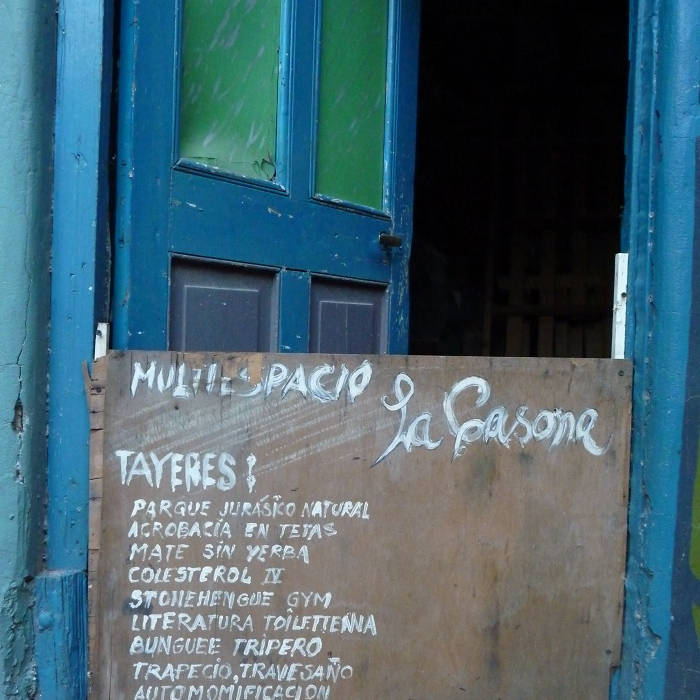 MULTIESPACIO La Casona
TAYERES:
PARQUE JURÁSICO NATURAL
ACROBACÍA EN TETAS
MATE SIN YERBA
COLESTEROL IV
STONEHENGUE GYM
LITERATURA TOILETTENNA
BUNGUEE TRIPERO
TRAPECIO, TRAVESAÑO
AUTOMOMIFICACION